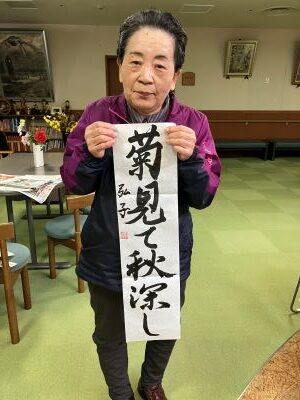 菊見て秋深し
弘子